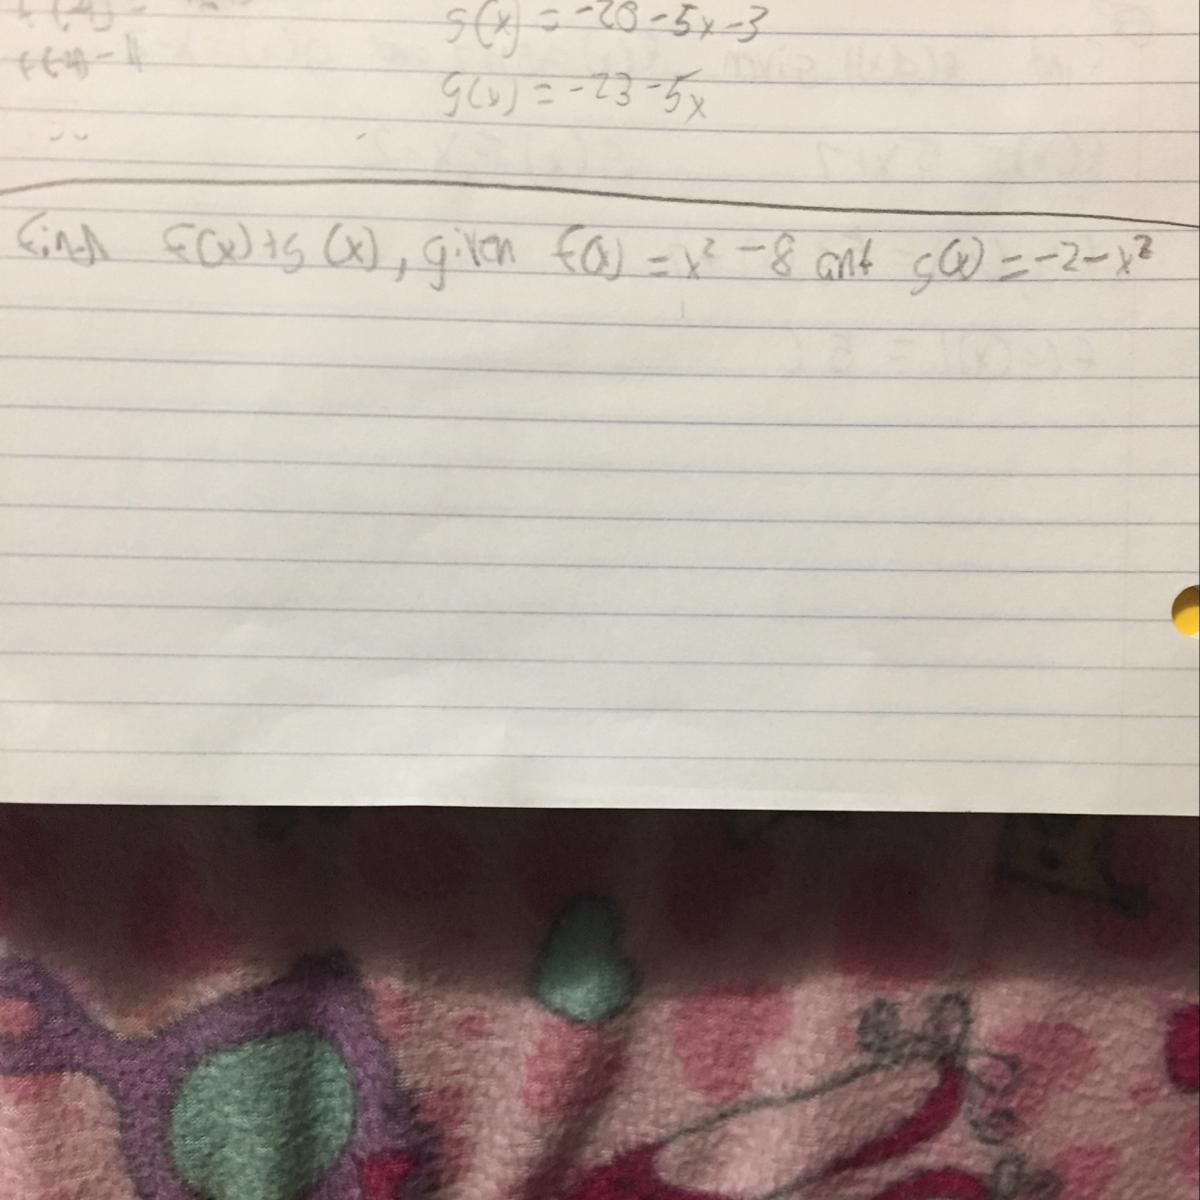 g(x) = -20-5x-3
g(x) = -23-5x
find f(x)+g(x), given f(x) = x² -8 and g(x) = -2-x²